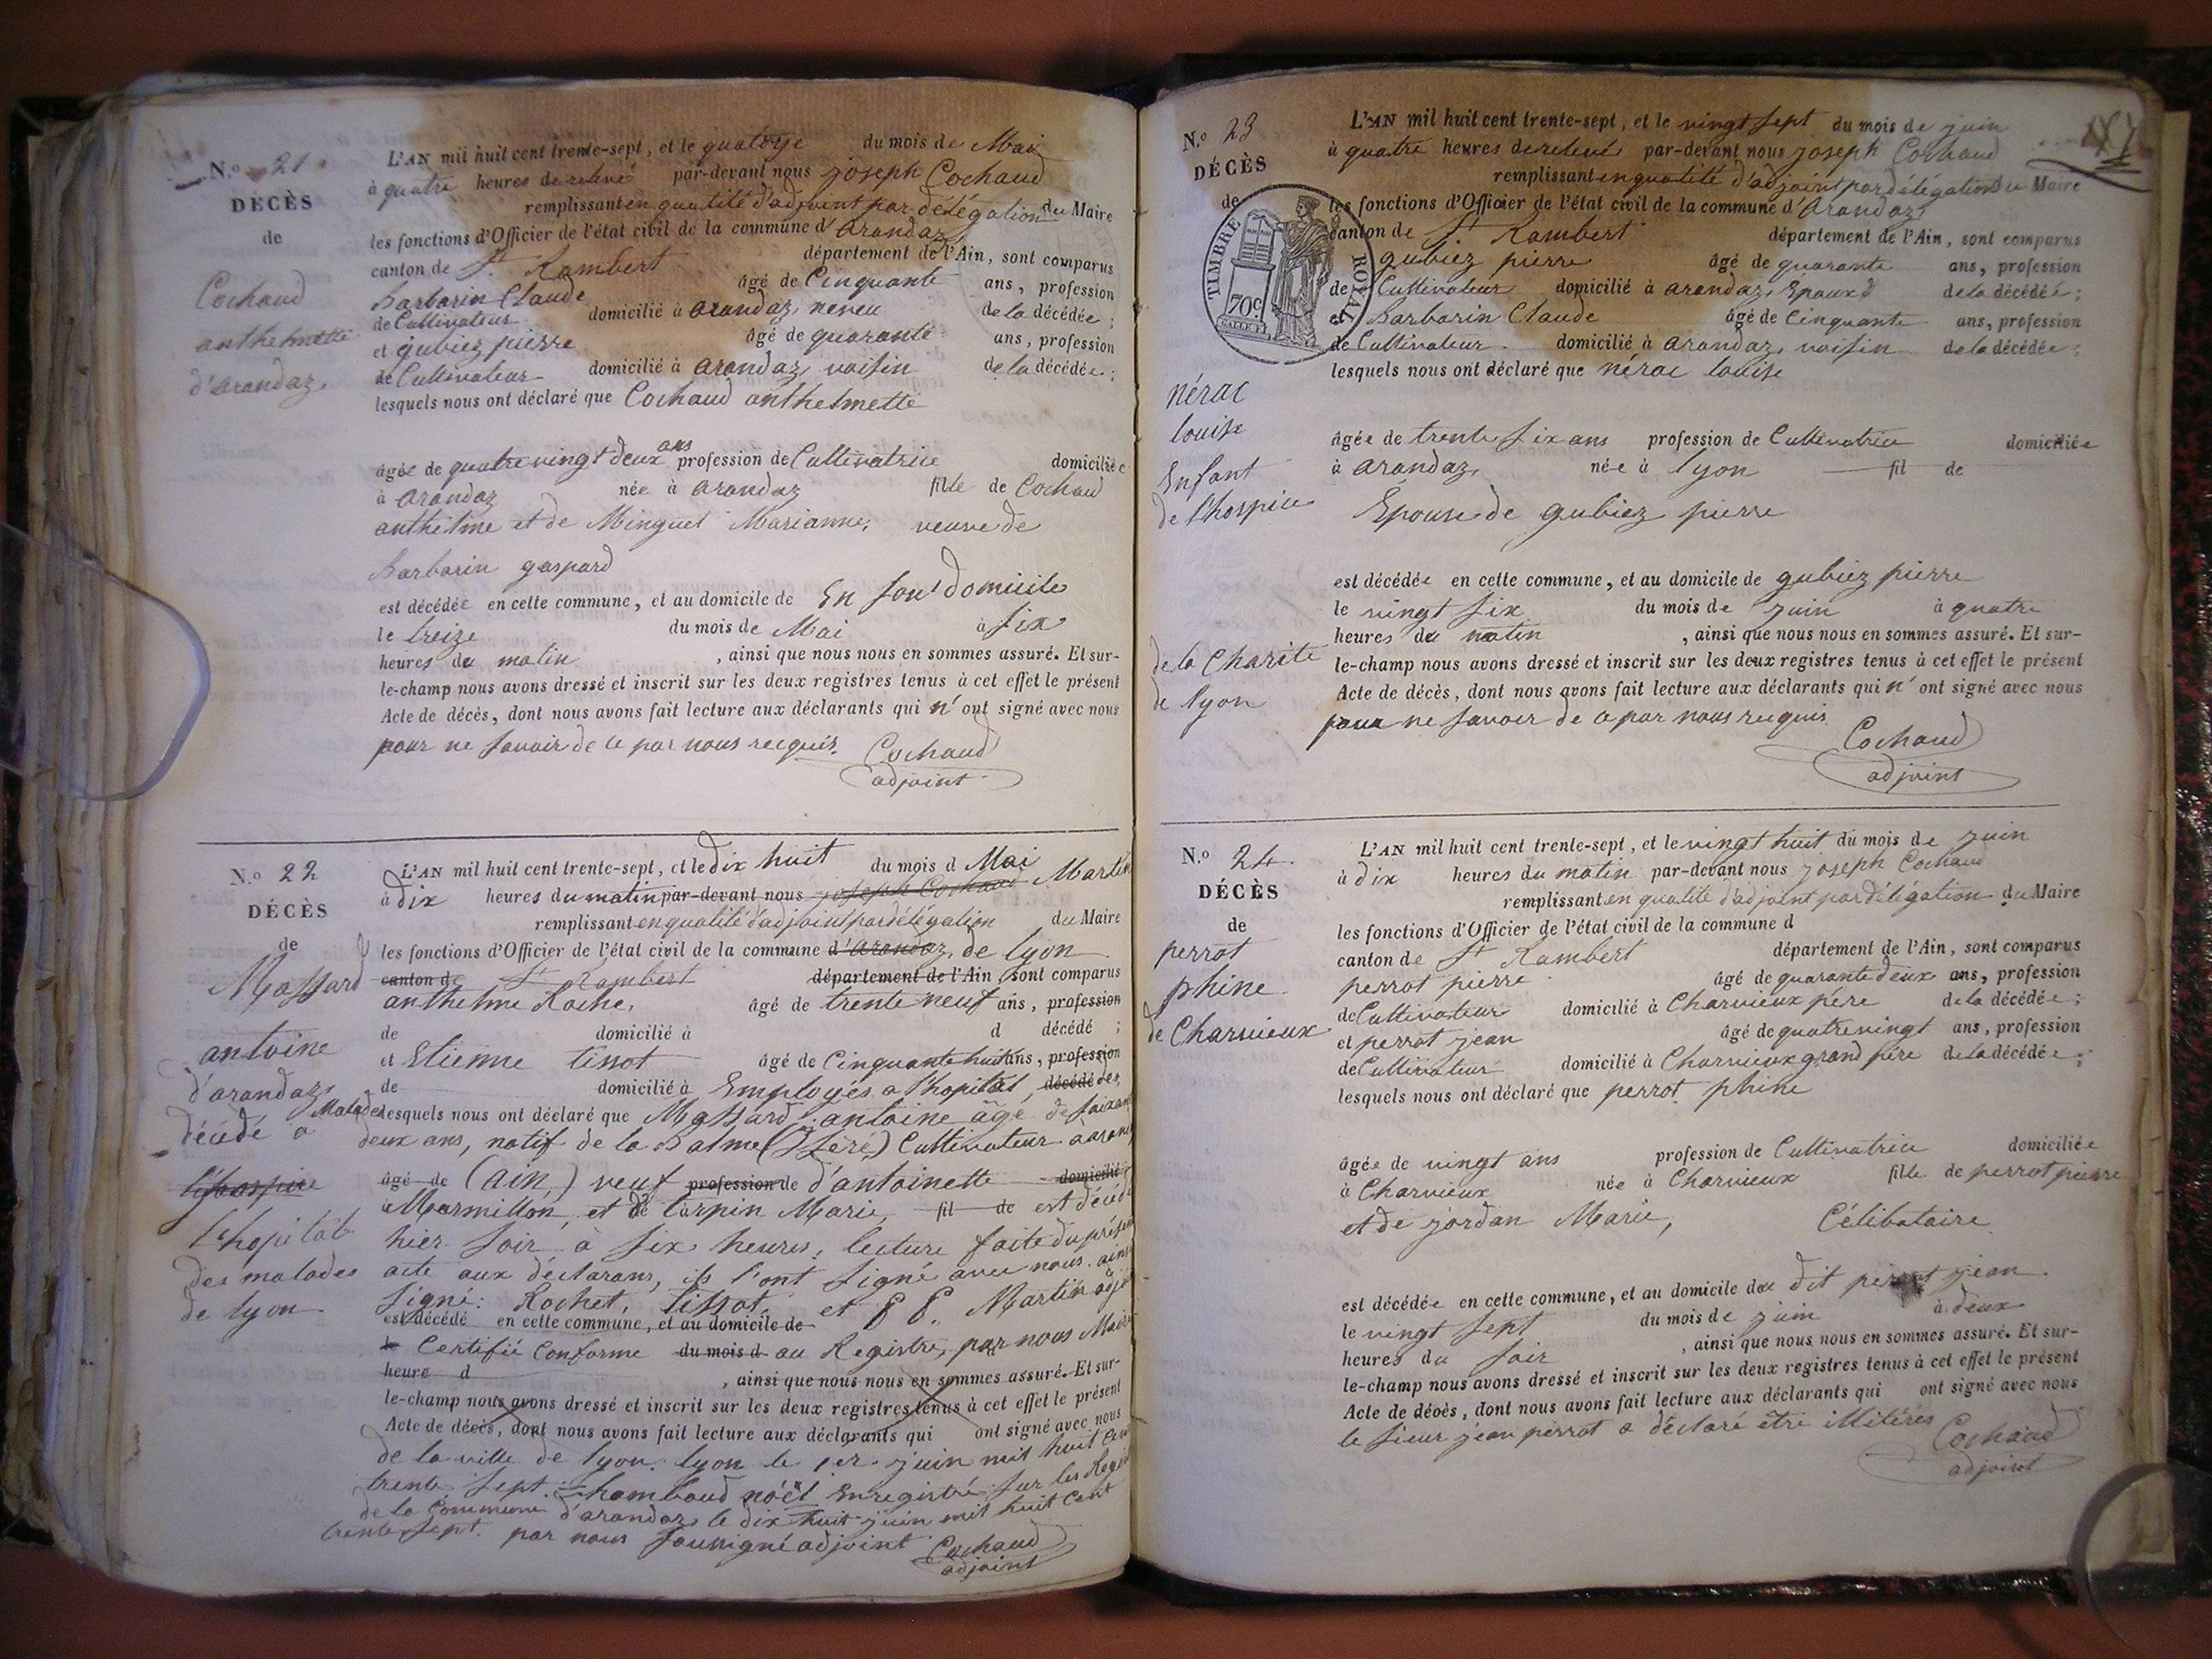 N.o 21
DÉCÈS
de
Cochaud
anthelmette
d'arandaz.
L'AN mil huit cent trente-sept, et le quatorze du mois de Mai
à quatre heures de relevé par-devant nous joseph Cochaud
remplissant en qualité d'adjoint par délégation du Maire
les fonctions d'Officier de l'état civil de la commune d'arandaz
canton de St Rambert département de l'Ain, sont comparus
Barbarin Claude âgé de Cinquante ans, profession
de Cultivateur domicilié à arandaz, neveu de la décédée;
et gubiez pierre âgé de quarante ans, profession
de Cultivateur domicilié à arandaz, voisin de la décédée;
lesquels nous ont déclaré que Cochaud anthelmette
âgée de quatre vingt deux ans profession de Cultivatrice domiciliée
à arandaz née à arandaz fille de Cochaud
anthelme et de Minguet Marianne, veuve de
Barbarin gaspard
est décédée en cette commune, et au domicile de En son domicile
le treize du mois de Mai à six
heures du matin, ainsi que nous nous en sommes assuré. Et sur-
le-champ nous avons dressé et inscrit sur les deux registres tenus à cet effet le présent
Acte de décès, dont nous avons fait lecture aux déclarants qui n'ont signé avec nous
pour ne savoir de ce par nous recquis. Cochaud
adjoint
N.o 22
DÉCÈS
de
Massard
antoine
d'arandaz
décédé a
l'hospice
l'hopital
des malades
de lyon.
L'AN mil huit cent trente-sept, et le dix huit du mois d Mai
à dix heures du matin par-devant nous joseph Cochaud Martin
remplissant en qualité d'adjoint par délégation du Maire
les fonctions d'Officier de l'état civil de la commune d'arandaz, de lyon
canton de St Rambert département de l'Ain, sont comparus
anthelme Roche, âgé de trente neuf ans, profession
de domicilié à d décédé ;
et Etienne tissot âgé de Cinquante huit ans, profession
de domicilié à Employés a l'hopital, décédé des
Malades lesquels nous ont déclaré que Massard antoine âgé de soixante
deux ans, natif de la Balme (Isère) Cultivateur à
âgé de (ain,) veuf profession de d'antoinette domicilié
à Marmillon, et de turpin Marie, fil de est décédé
hier soir à six heures, lecture faite du présent
acte aux déclarans, ils l'ont signé avec nous. ainsi
signé: Rochet, tissot, et Martin adjt
est décédé en cette commune, et au domicile de
le Certifié Conforme du mois d au Registre, par nous Maire
heure d , ainsi que nous nous en sommes assuré. Et sur-
le-champ nous avons dressé et inscrit sur les deux registres tenus à cet effet le présent
Acte de décès, dont nous avons fait lecture aux déclarants qui ont signé avec nous
de la ville de lyon. lyon le 1er juin mil huit cent
trente sept. Chambaud noël Enregistré sur les
de la Commune d'arandaz le dix huit juin mil huit cent
trente sept. par nous soussigné adjoint Cochaud
adjoint
N.o 23
DÉCÈS
de
TIMBRE ROYAL
70c
nérac
louise
Enfant
de l'hospice
de la Charité
de lyon
L'AN mil huit cent trente-sept, et le vingt sept du mois de juin
à quatre heures de relevé par-devant nous joseph Cochaud
remplissant en qualité d'adjoint par délégation du Maire
les fonctions d'Officier de l'état civil de la commune d'arandaz
canton de St Rambert département de l'Ain, sont comparus
gubiez pierre âgé de quarante ans, profession
de Cultivateur domicilié à arandaz, Epoux de la décédée;
et Barbarin Claude âgé de Cinquante ans, profession
de Cultivateur domicilié à arandaz, voisin de la décédée;
lesquels nous ont déclaré que nérac louise
âgée de trente six ans profession de Cultivatrice domiciliée
à arandaz, née à lyon fil de
Epouse de gubiez pierre
est décédée en cette commune, et au domicile de gubiez pierre
le vingt six du mois de juin à quatre
heures du matin, ainsi que nous nous en sommes assuré. Et sur-
le-champ nous avons dressé et inscrit sur les deux registres tenus à cet effet le présent
Acte de décès, dont nous avons fait lecture aux déclarants qui n'ont signé avec nous
pour ne savoir de ce par nous recquis.
Cochaud
adjoint
N.o 24
DÉCÈS
de
perrot
phine
de Charvieux
L'AN mil huit cent trente-sept, et le vingt huit du mois de juin
à dix heures du matin par-devant nous joseph Cochaud
remplissant en qualité d'adjoint par délégation du Maire
les fonctions d'Officier de l'état civil de la commune d
canton de St Rambert département de l'Ain, sont comparus
perrot pierre âgé de quarante deux ans, profession
de Cultivateur domicilié à Charvieux père de la décédée;
et perrot jean âgé de quatre vingt ans, profession
de Cultivateur domicilié à Charvieux grand père de la décédée;
lesquels nous ont déclaré que perrot phine
âgée de vingt ans profession de Cultivatrice domiciliée
à Charvieux née à Charvieux fille de perrot pierre
et de jordan Marie, Célibataire
est décédée en cette commune, et au domicile du dit perrot jean.
le vingt sept du mois de juin à deux
heures du soir, ainsi que nous nous en sommes assuré. Et sur-
le-champ nous avons dressé et inscrit sur les deux registres tenus à cet effet le présent
Acte de décès, dont nous avons fait lecture aux déclarants qui ont signé avec nous
le sieur jean perrot a déclaré être illitérés
Cochaud
adjoint